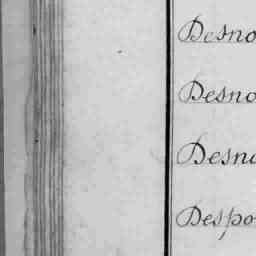 Desno
Desno
Desno
Despo